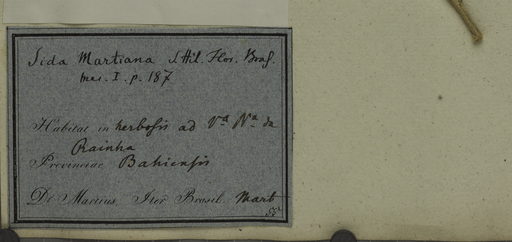 Sida Martiana S. Hil. Flor. Bras.
mer. I. p. 187
Habitat in herbosis ad Va. Na. da
Rainha
Provinciae Bahiensis
Dr. Martius Iter Brasil. Mart